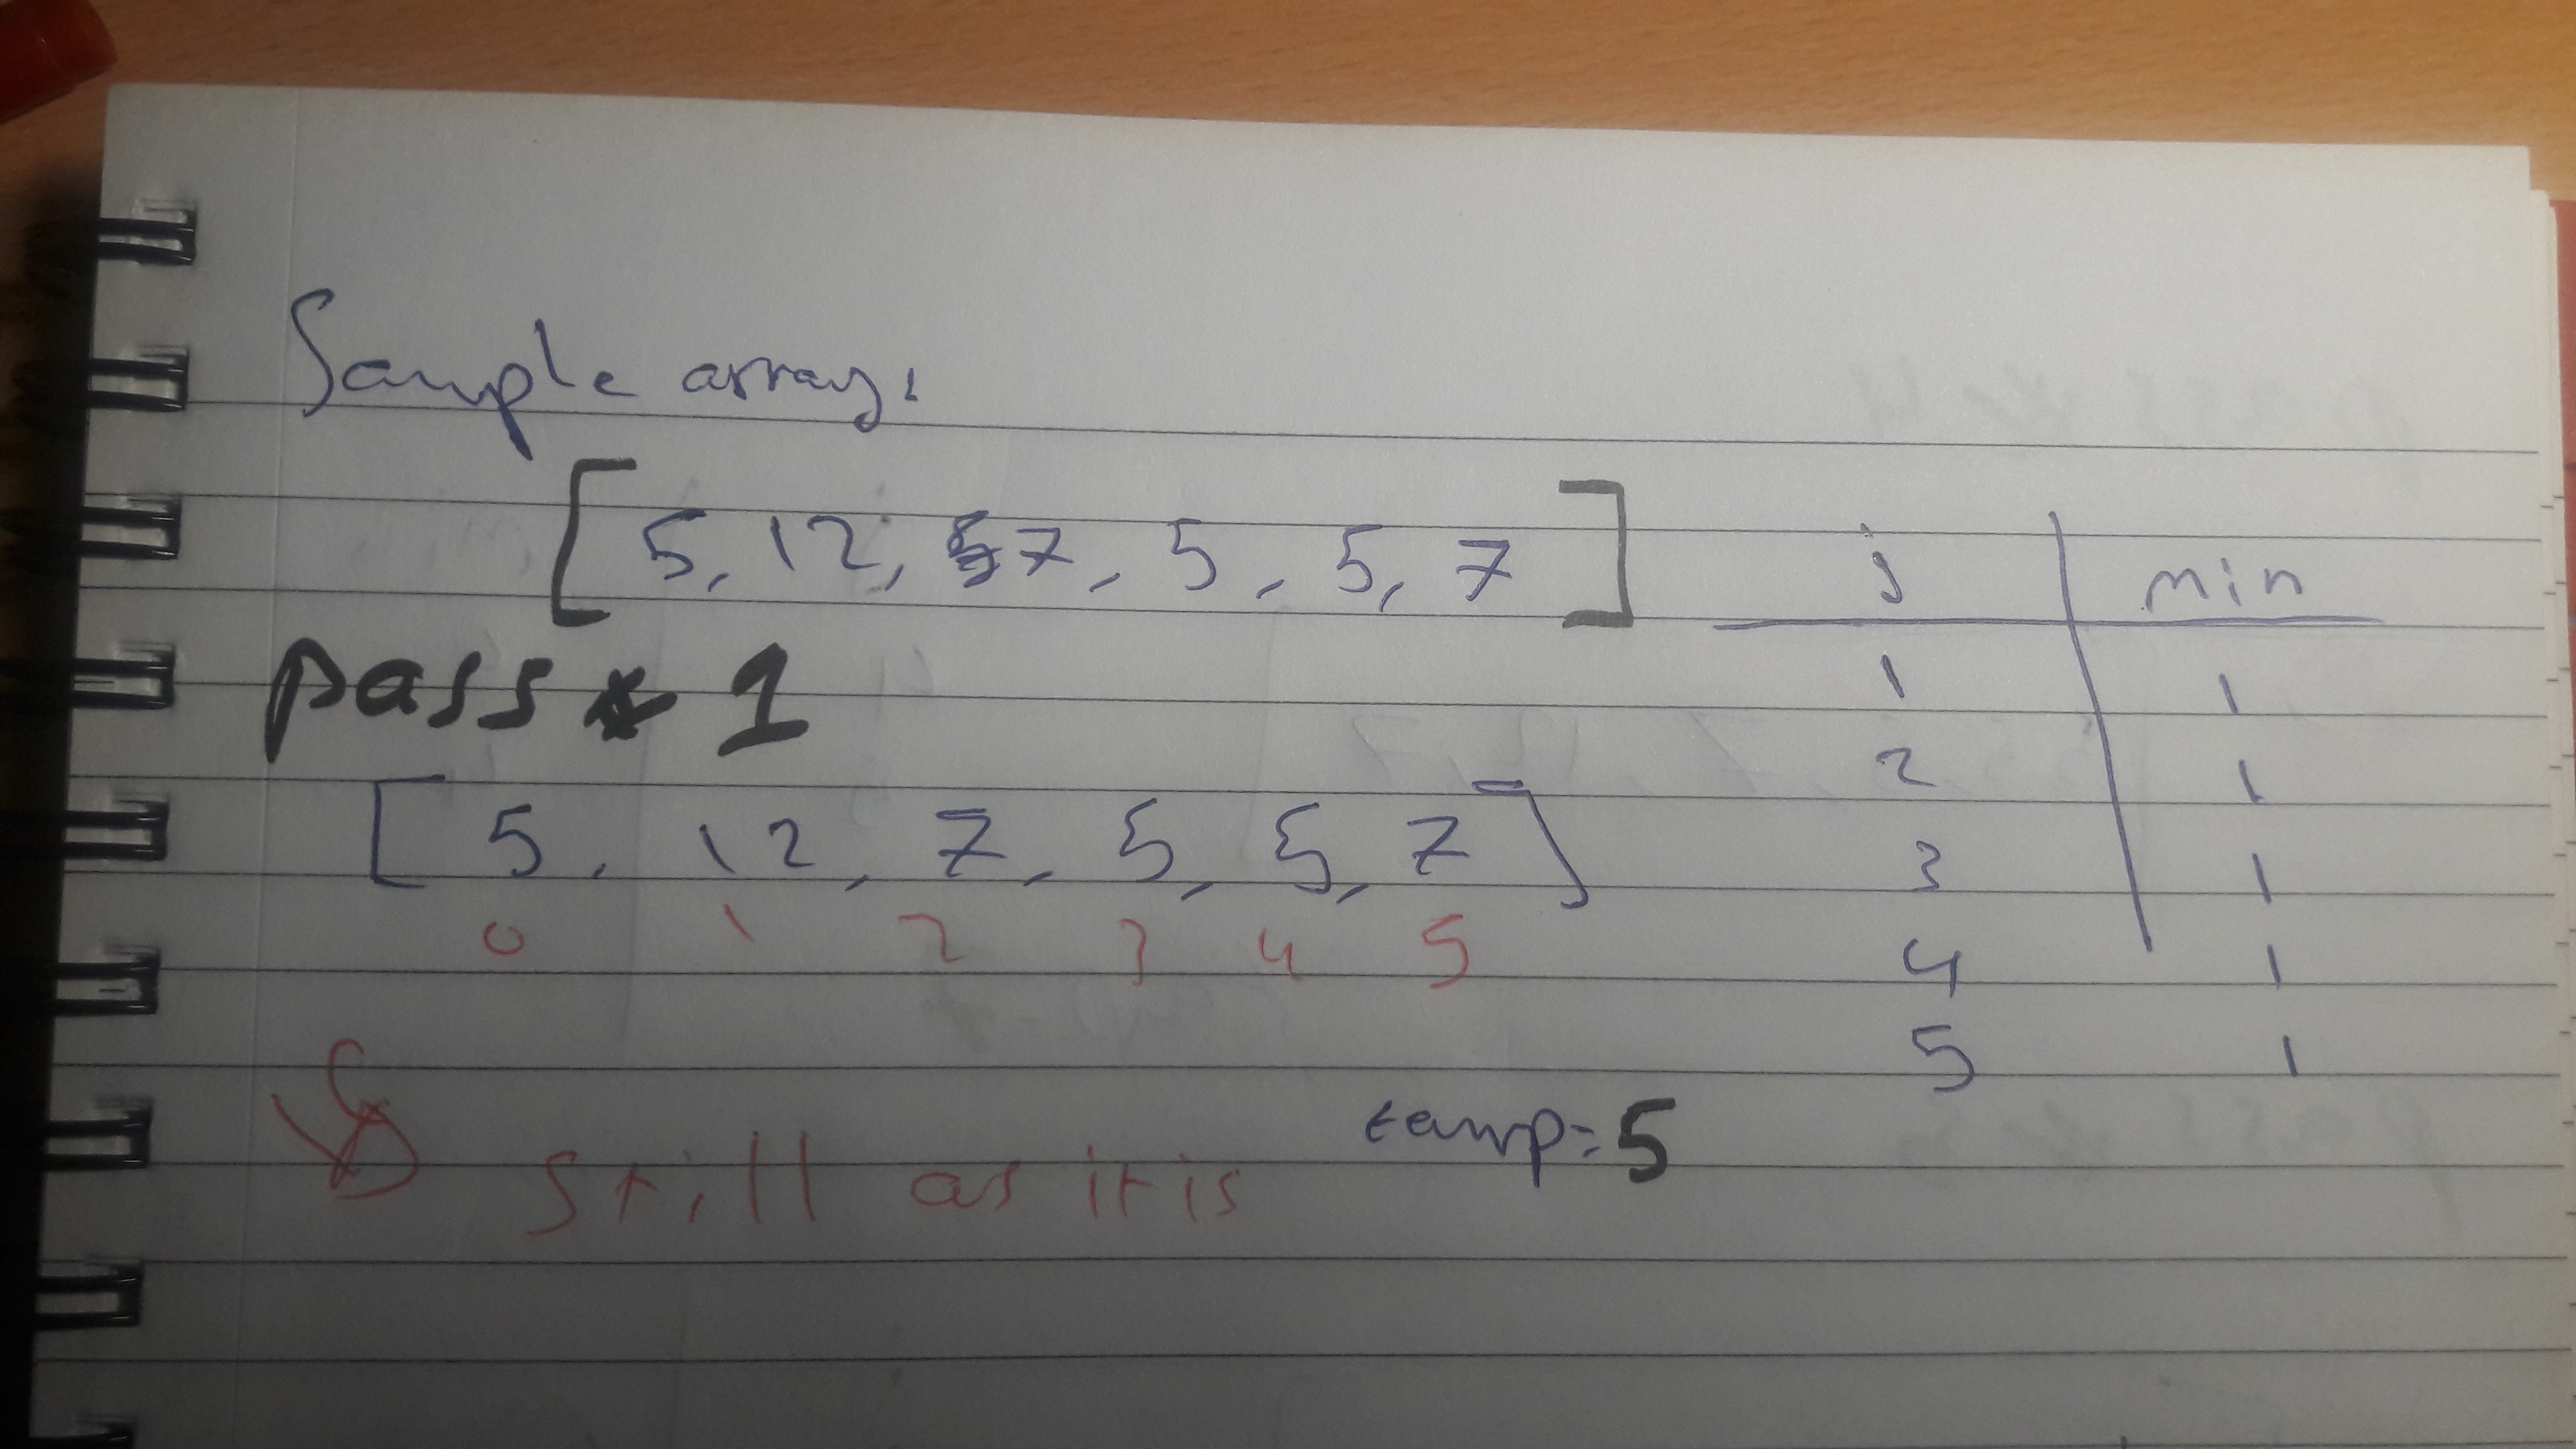 Sample array:
[5, 12, 7, 5, 5, 7]
pass * 1
[5, 12, 7, 5, 5, 7]
0 1 2 3 4 5
still as it is
temp = 5
j min
1 1
2 1
3 1
4 1
5 1